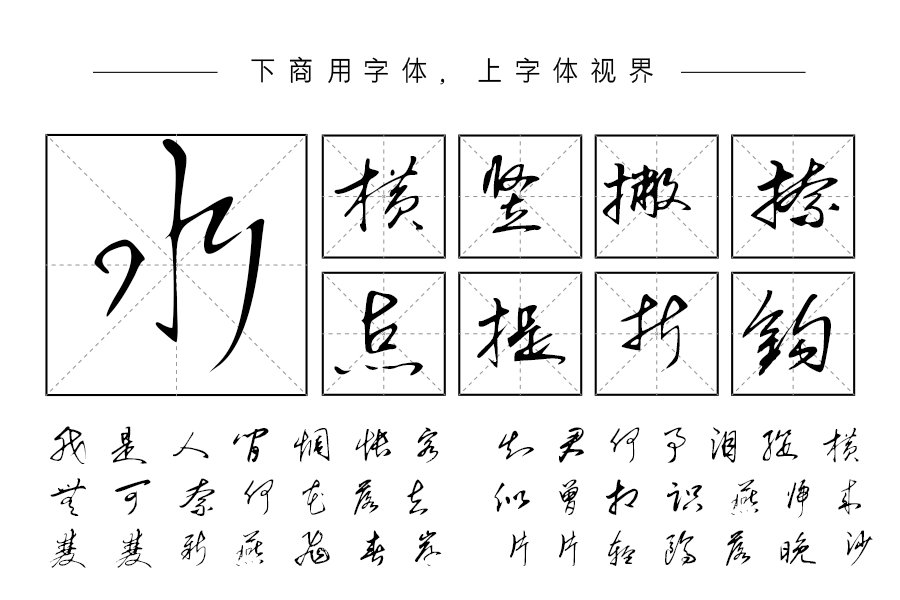 下商用字体，上字体视界
水
横 竖 撇 捺
点 提 折 钩
我是人间惆怅客 知君何事泪纵横
无可奈何花落去 似曾相识燕归来
双双新燕飞春岸 片片轻鸥落晚沙